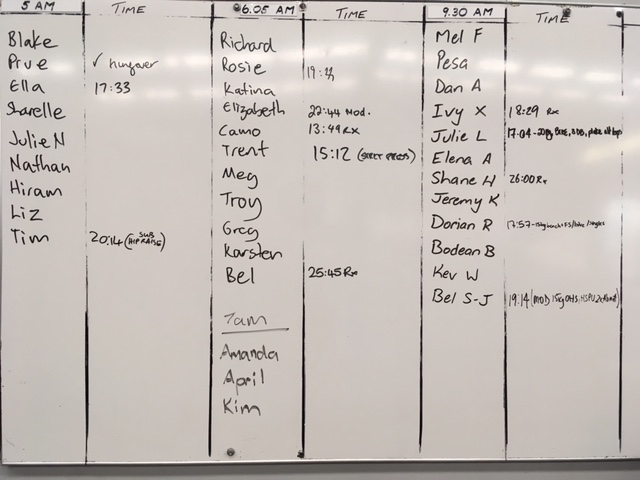 5 AM TIME
Blake
Prue ✓ hungover
Ella 17:33
Sharelle
Julie N
Nathan
Hiram
Liz
Tim 20:14 (SUB HIP RAISE)
6.05 AM TIME
Richard
Rosie
Katina
Elizabeth 22:44 Mod.
Camo 13:49 RX
Trent 15:12 (STRICT PRESS)
Meg
Troy
Greg
Karsten
Bel 25:45 Rx
7am
Amanda
April
Kim
9.30 AM TIME
Mel F
Pesa
Dan A
Ivy X 18:29 Rx
Julie L 17:04
Elena A
Shane H 26:00 Rx
Jeremy K
Dorian R 17:57
Bodean B
Kev W
Bel S-J 19:14 (MOD 15kg OHS, HSPU